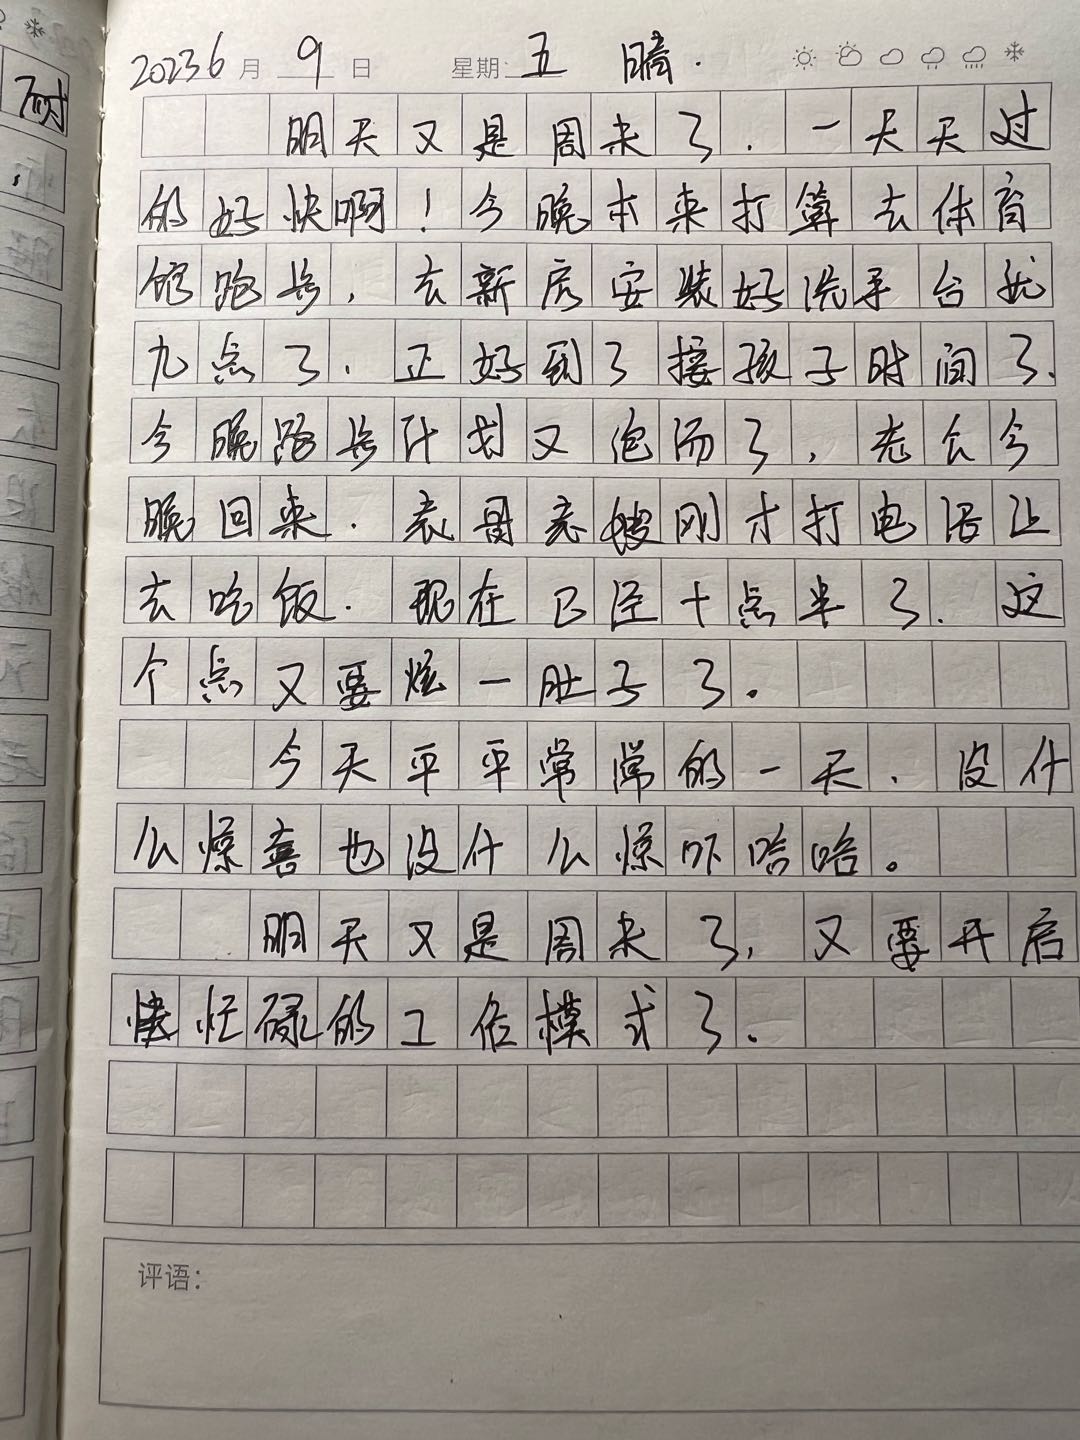 2023 6月 9日 星期: 五 晴.
明天又是周末了.一天天过
的好快啊!今晚本来打算去体育
馆跑步,去新房安装好洗手台就
九点了.正好到了接孩子时间了.
今晚跑步计划又泡汤了,老公今
晚回来.表哥表嫂刚才打电话让
去吃饭.现在已经十点半了.这
个点又要炫一肚子了。
今天平平常常的一天.没什
么惊喜也没什么惊吓哈哈。
明天又是周末了,又要开启
忙碌的工作模式了.
评语:
耐